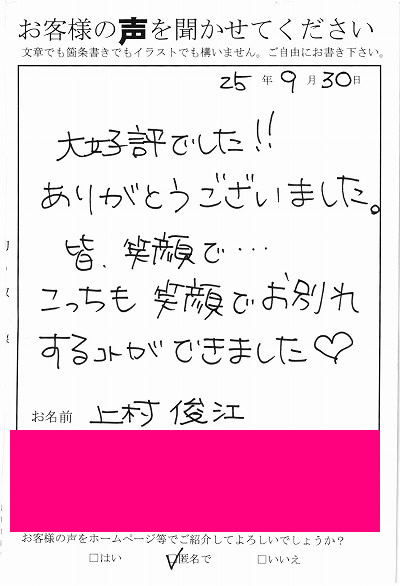 お客様の声を聞かせてください
文章でも箇条書きでもイラストでも構いません。ご自由にお書き下さい。
25年9月30日
大好評でした!!
ありがとうございました。
皆、笑顔で…
こっちも笑顔でお別れ
するコトができました♡
お名前 上村俊江
お客様の声をホームページ等でご紹介してよろしいでしょうか?
□はい ☑匿名で □いいえ